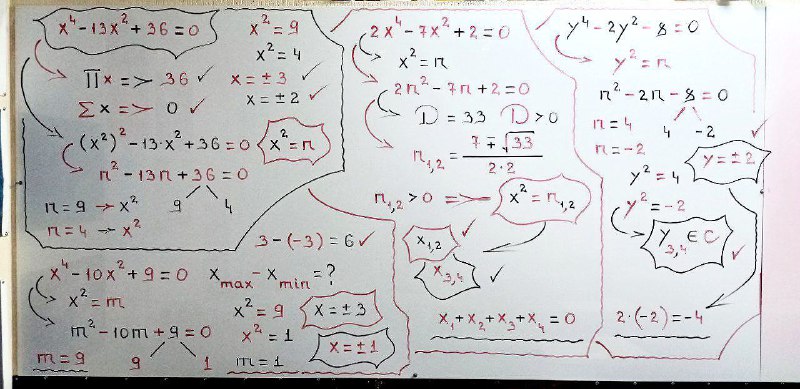 x⁴-13x²+36=0
∏x => 36 ✓
∑x => 0 ✓
(x²)²-13·x²+36=0
x²=n
n²-13n+36=0
9 4
n=9 → x²
n=4 → x²
x²=9
x²=4
x=±3 ✓
x=±2 ✓
x⁴-10x²+9=0
x²=m
m²-10m+9=0
9 1
m=9
m=1
3-(-3)=6 ✓
x_max - x_min = ?
x²=9
x=±3
x²=1
x=±1
2x⁴-7x²+2=0
x²=n
2n²-7n+2=0
D=33 D>0
n₁,₂ = (7∓√33)/(2·2)
n₁,₂>0 => x²=n₁,₂
x₁,₂ ✓
x₃,₄ ✓
x₁+x₂+x₃+x₄=0
y⁴-2y²-8=0
y²=n
n²-2n-8=0
4 -2
n=4
n=-2
y=±2 ✓
y²=4
y²=-2
y₃,₄ ∈ C ✓
2·(-2)=-4